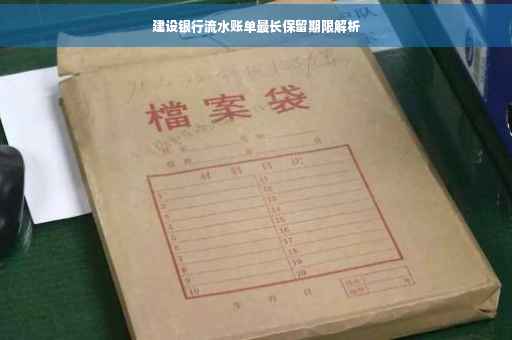 建设银行流水账单最长保留期限解析
檔案袋
材料目次
1 11
2 12
3 13
4 14
5 15
6 16
7 17
8 18
9 19
10 20
年 月 日